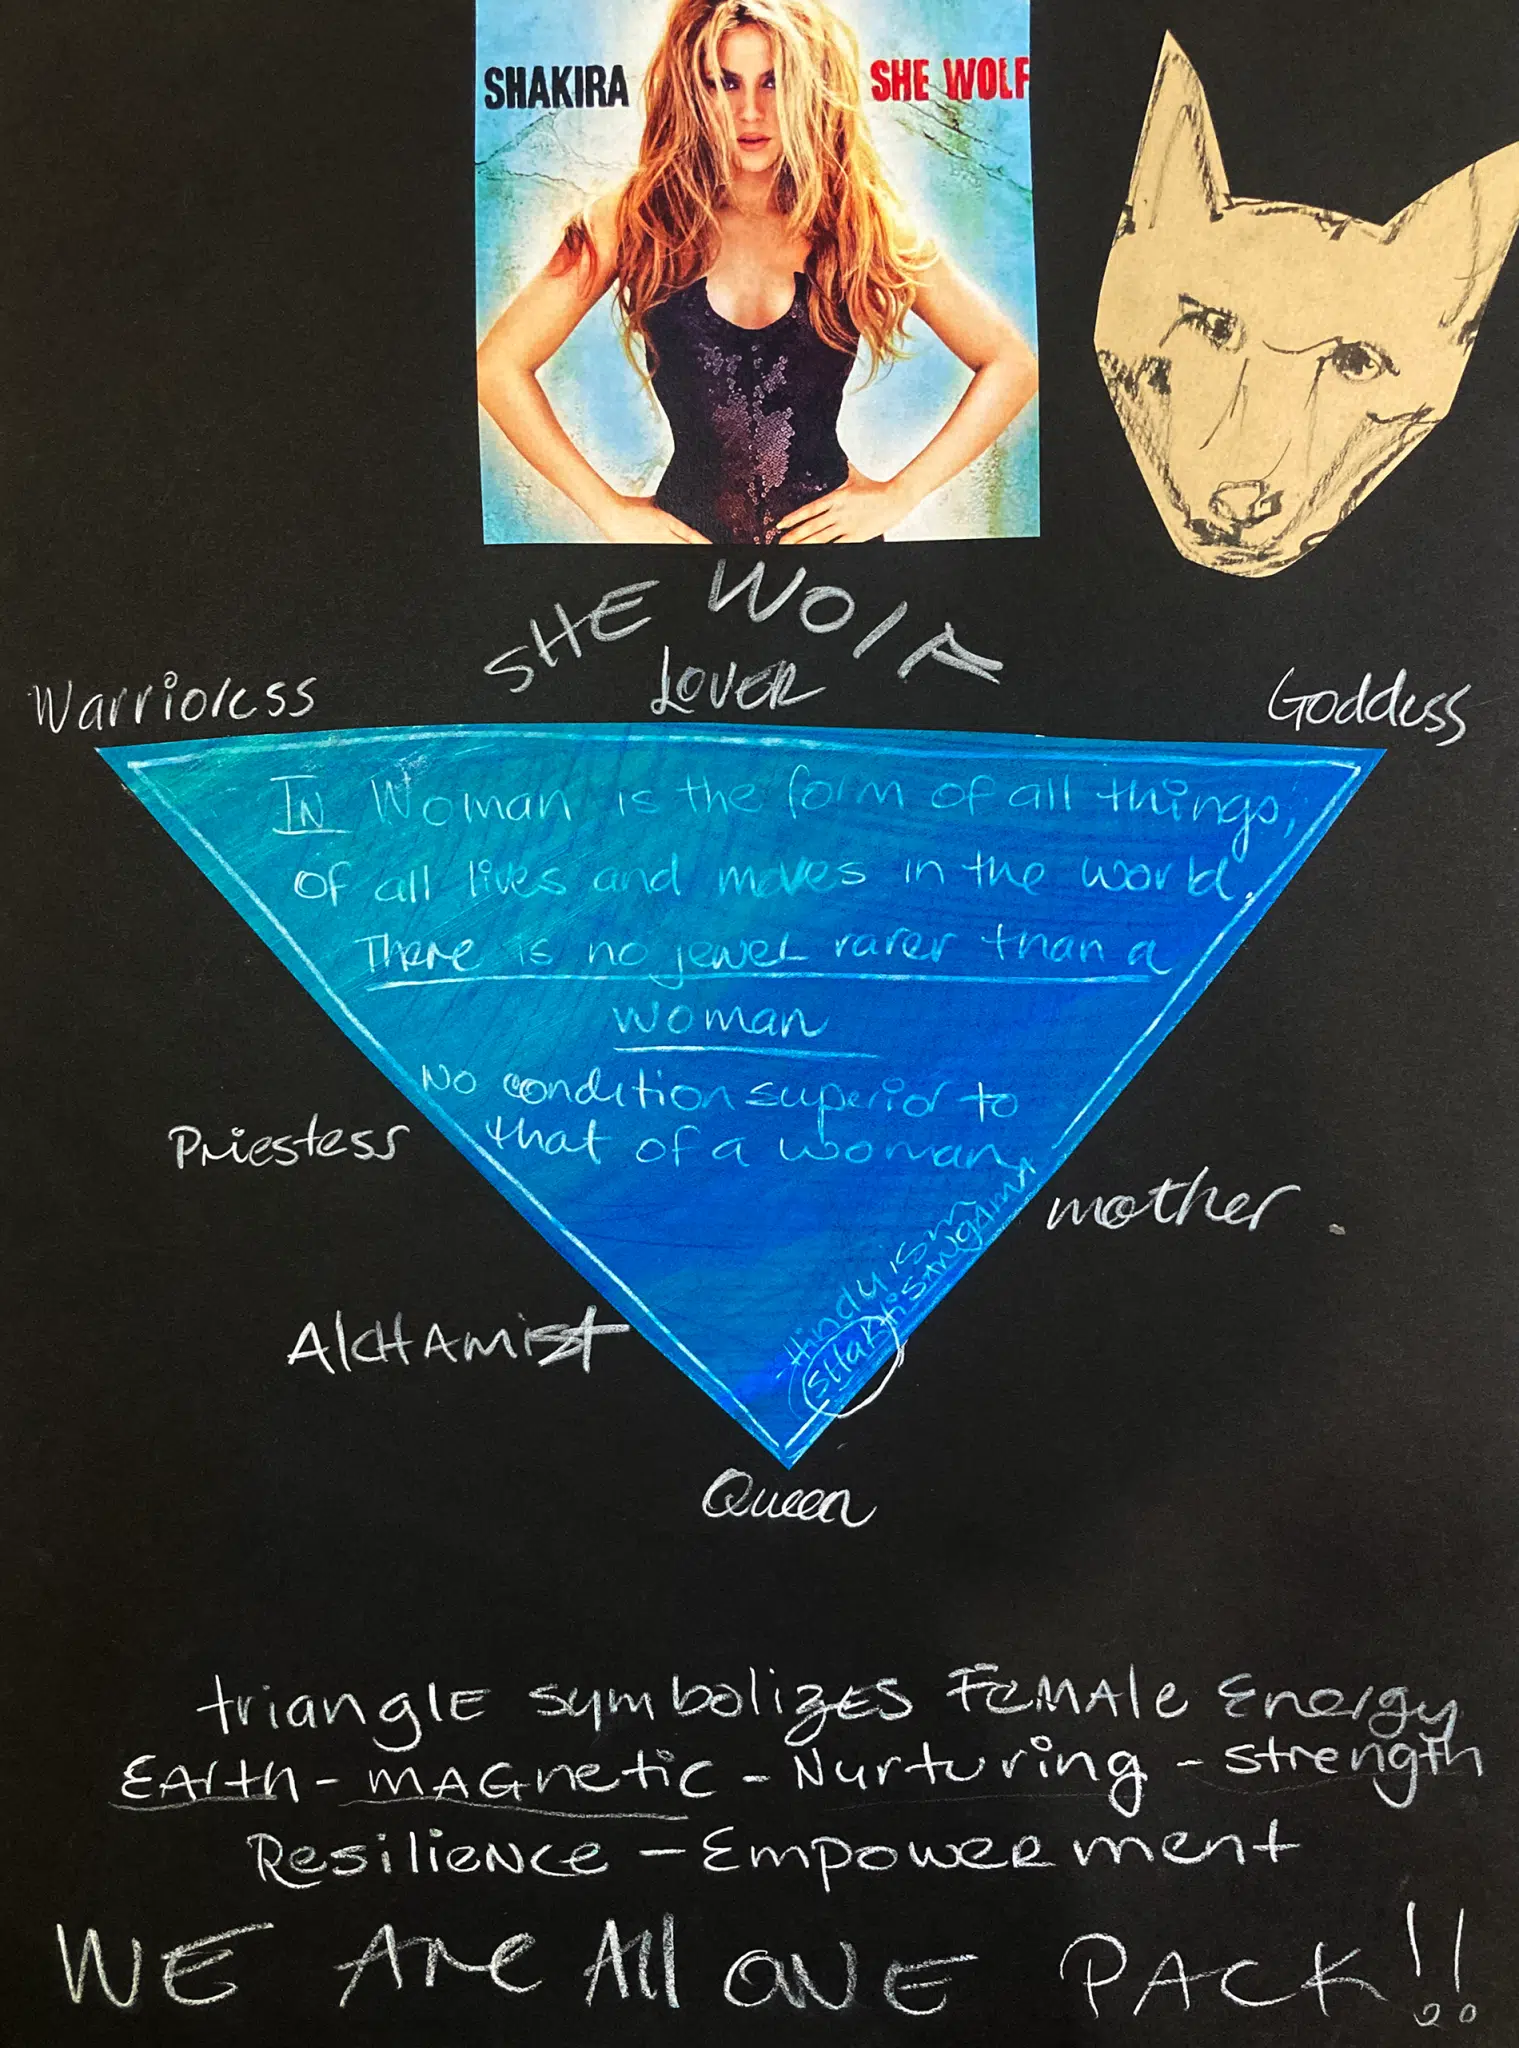 SHAKIRA
SHE WOLF
SHE WOLF
Warrioress
LOVER
Goddess
IN Woman is the form of all things,
of all lives and moves in the world.
There is no jewel rarer than a
woman
No condition superior to
that of a woman
Hinduism
SHaktiSANGAMA
Priestess
mother
AlcHAmist
Queen
triangLE symbolizes FEMAle Energy
EArth - MAGnetic - Nurturing - Strength
Resilience - Empowerment
WE Are All ONE PACK!!